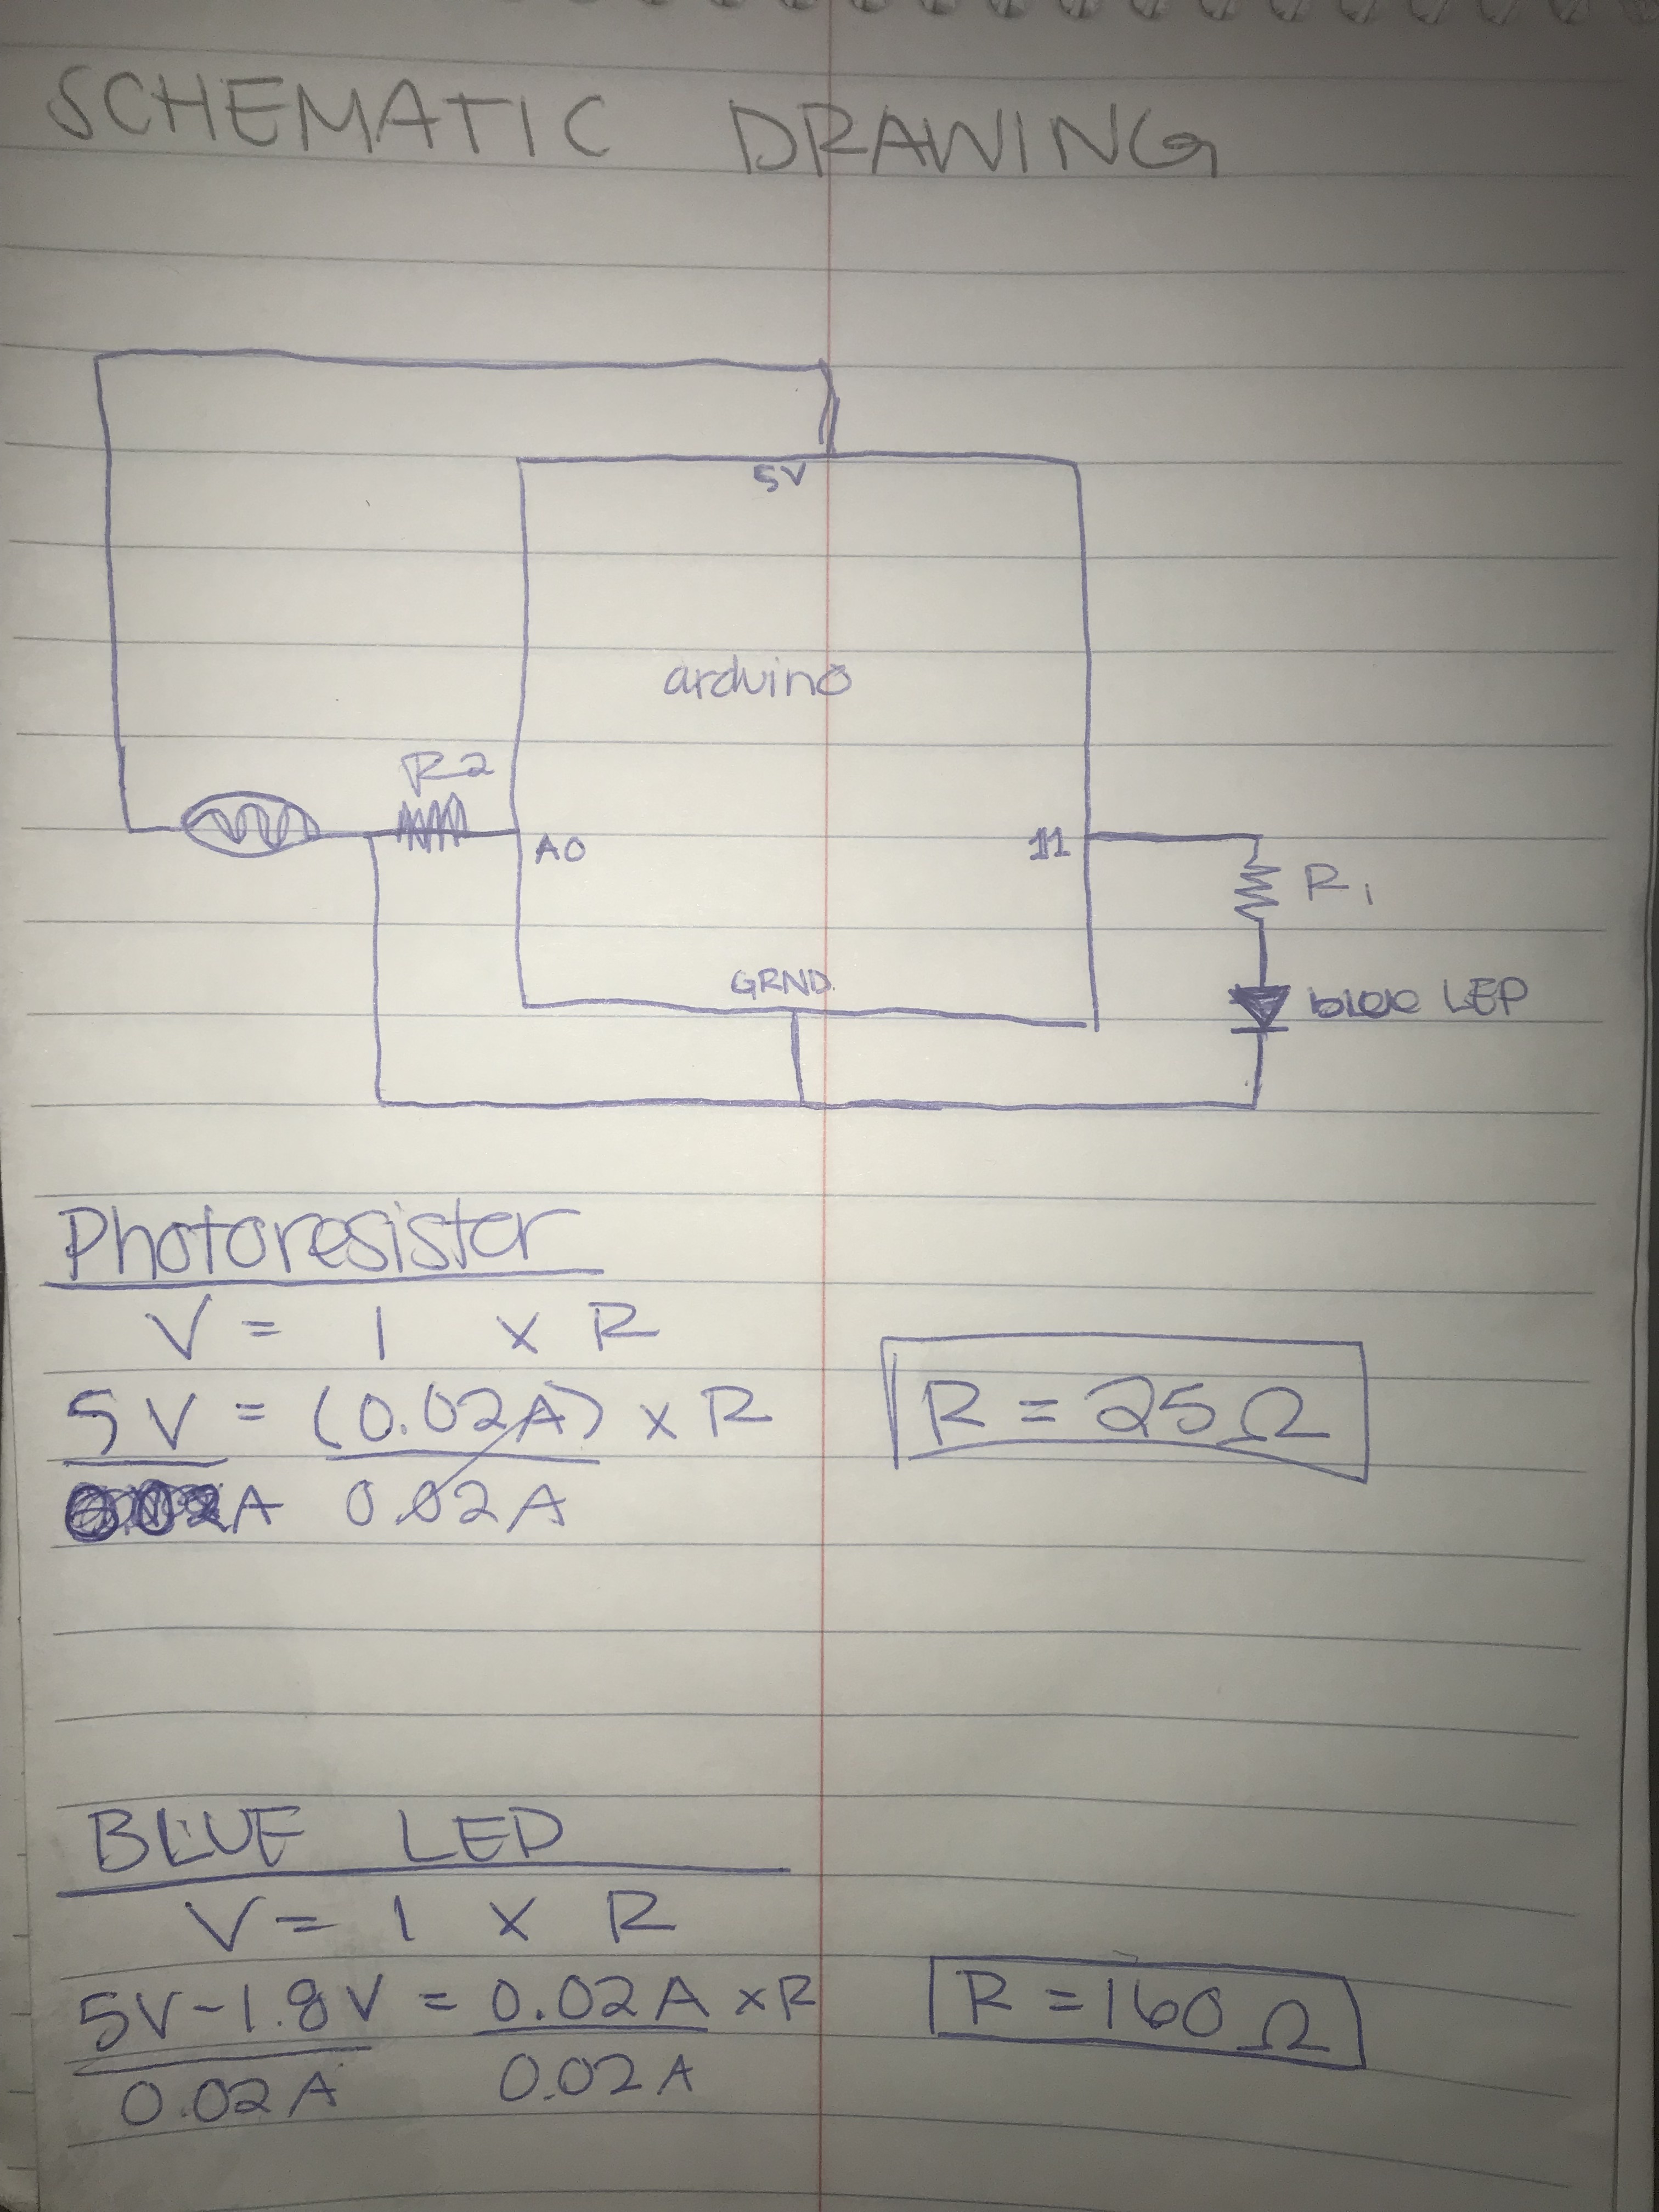 SCHEMATIC DRAWING
5V
arduino
R2
A0
11
R1
GRND
blue LED
Photoresister
V = I x R
5V = (0.02A) x R
0.02A 0.02A
R = 25Ω
BLUE LED
V = I x R
5V-1.8V = 0.02A xR
0.02A 0.02A
R = 160Ω